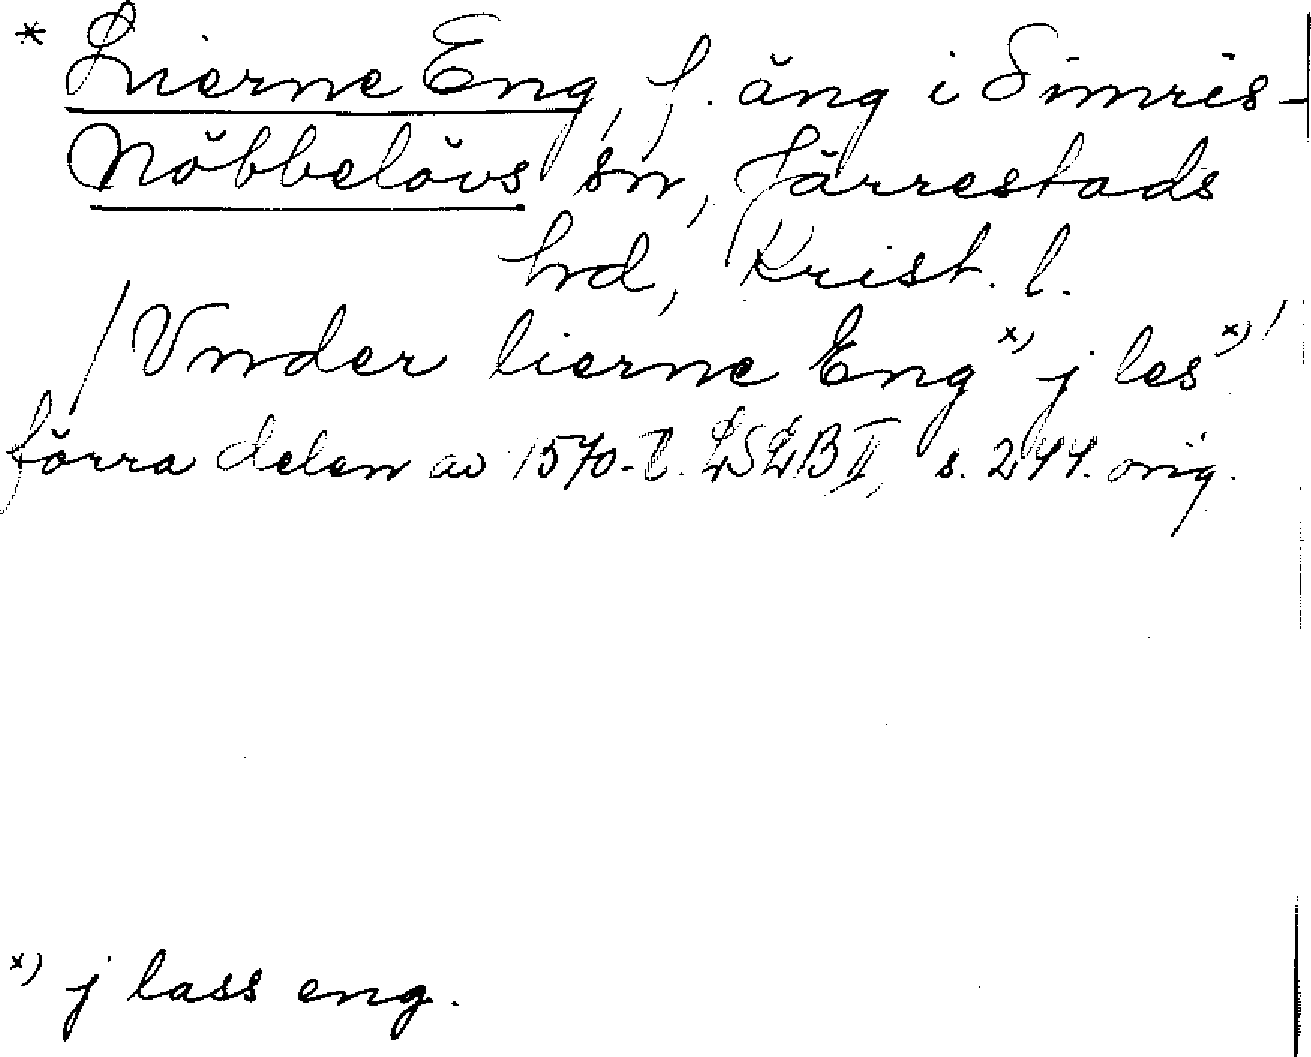 * Lierne Eng, f. äng i Simris-
Nöbbelövs sn, Järrestads
hd, Krist. l.
/Vnder lierne Eng x) j les x)/
förra delen av 1570-t. LSLB II, s. 244. orig.
x) j lass eng.